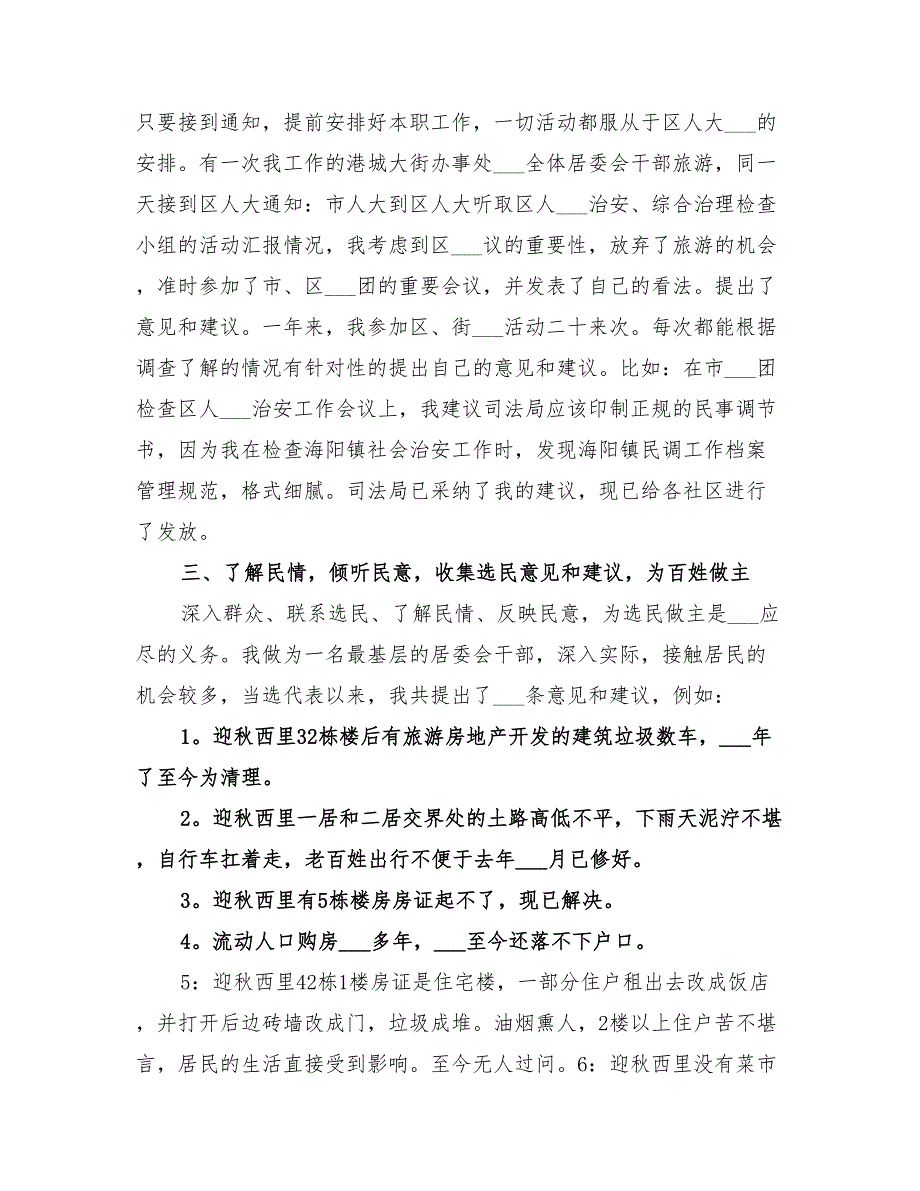 只要接到通知，提前安排好本职工作，一切活动都服从于区人大___的
安排。有一次我工作的港城大街办事处___全体居委会干部旅游，同一
天接到区人大通知：市人大到区人大听取区人___治安、综合治理检查
小组的活动汇报情况，我考虑到区___议的重要性，放弃了旅游的机会
，准时参加了市、区___团的重要会议，并发表了自己的看法。提出了
意见和建议。一年来，我参加区、街___活动二十来次。每次都能根据
调查了解的情况有针对性的提出自己的意见和建议。比如：在市___团
检查区人___治安工作会议上，我建议司法局应该印制正规的民事调节
书，因为我在检查海阳镇社会治安工作时，发现海阳镇民调工作档案
管理规范，格式细腻。司法局已采纳了我的建议，现已给各社区进行
了发放。
三、了解民情，倾听民意，收集选民意见和建议，为百姓做主
深入群众、联系选民、了解民情、反映民意，为选民做主是___应
尽的义务。我做为一名最基层的居委会干部，深入实际，接触居民的
机会较多，当选代表以来，我共提出了___条意见和建议，例如：
1。迎秋西里32栋楼后有旅游房地产开发的建筑垃圾数车，___年
了至今为清理。
2。迎秋西里一居和二居交界处的土路高低不平，下雨天泥泞不堪
，自行车扛着走，老百姓出行不便于去年___月已修好。
3。迎秋西里有5栋楼房房证起不了，现已解决。
4。流动人口购房___多年，___至今还落不下户口。
5：迎秋西里42栋1楼房证是住宅楼，一部分住户租出去改成饭店
，并打开后边砖墙改成门，垃圾成堆。油烟熏人，2楼以上住户苦不堪
言，居民的生活直接受到影响。至今无人过问。6：迎秋西里没有菜市